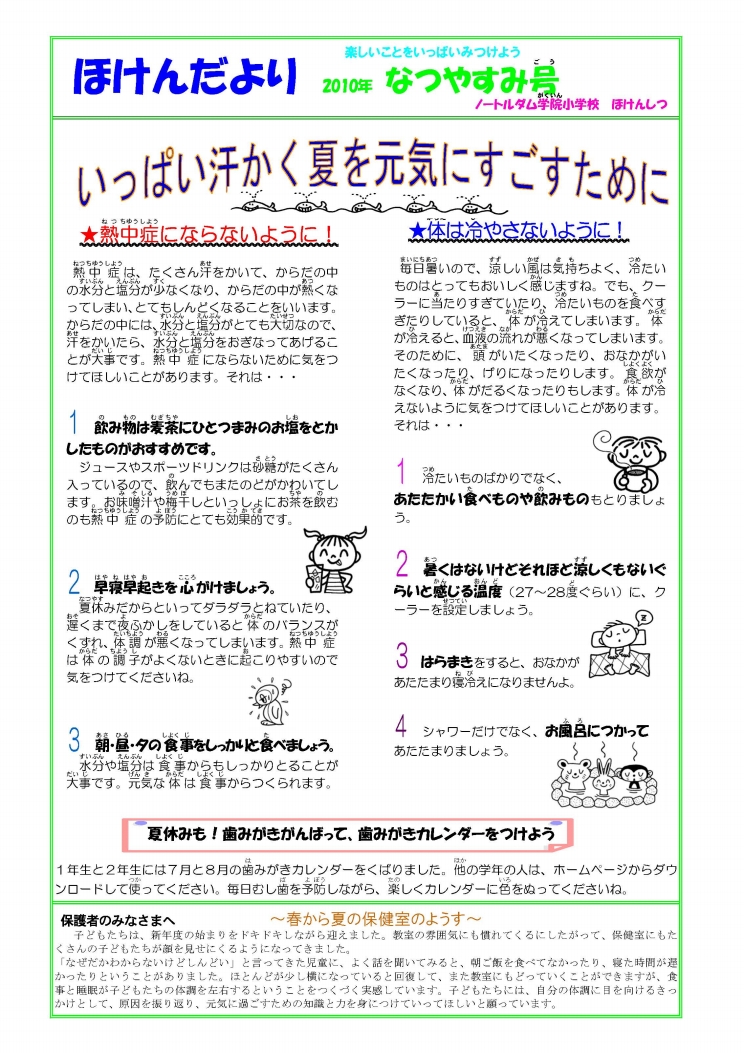 楽しいことをいっぱいみつけよう
ほけんだより 2010年 なつやすみ号
ノートルダム学院小学校 ほけんしつ
いっぱい汗かく夏を元気にすごすために
★熱中症にならないように！
熱中症は、たくさん汗をかいて、からだの中
の水分と塩分が少なくなり、からだの中が熱くな
ってしまい、とてもしんどくなることをいいます。
からだの中には、水分と塩分がとても大切なので、
汗をかいたら、水分と塩分をおぎなってあげるこ
とが大事です。熱中症にならないために気をつ
けてほしいことがあります。それは・・・
1 飲み物は麦茶にひとつまみのお塩をとか
したものがおすすめです。
ジュースやスポーツドリンクは砂糖がたくさん
入っているので、飲んでもまたのどがかわいてし
ます。お味噌汁や梅干しといっしょにお茶を飲む
のも熱中症の予防にとても効果的です。
2 早寝早起きを心がけましょう。
夏休みだからといってダラダラとねていたり、
遅くまで夜ふかしをしていると体のバランスが
くずれ、体調が悪くなってしまいます。熱中症
は体の調子がよくないときに起こりやすいので
気をつけてくださいね。
3 朝・昼・夕の食事をしっかりと食べましょう。
水分や塩分は食事からもしっかりとることが
大事です。元気な体は食事からつくられます。
★体は冷やさないように！
毎日暑いので、涼しい風は気持ちよく、冷たい
ものはとってもおいしく感じますね。でも、クー
ラーに当たりすぎていたり、冷たいものを食べす
ぎたりしていると、体が冷えてしまいます。体
が冷えると、血液の流れが悪くなってしまいます。
そのために、頭がいたくなったり、おなかがい
たくなったり、げりになったりします。食欲が
なくなり、体がだるくなったりもします。体が冷
えないように気をつけてほしいことがあります。
それは・・・
1 冷たいものばかりでなく、
あたたかい食べものや飲みものもとりましょ
う。
2 暑くはないけどそれほど涼しくもないぐ
らいと感じる温度（27～28度ぐらい）に、ク
ーラーを設定しましょう。
3 はらまきをすると、おなかが
あたたまり寝冷えになりませんよ。
4 シャワーだけでなく、お風呂につかって
あたたまりましょう。
夏休みも！歯みがきがんばって、歯みがきカレンダーをつけよう
１年生と２年生には７月と８月の歯みがきカレンダーをくばりました。他の学年の人は、ホームページからダウ
ンロードして使ってください。毎日むし歯を予防しながら、楽しくカレンダーに色をぬってくださいね。
保護者のみなさまへ ～春から夏の保健室のようす～
子どもたちは、新年度の始まりをドキドキしながら迎えました。教室の雰囲気にも慣れてくるにしたがって、保健室にもた
くさんの子どもたちが顔を見せにくるようになってきました。
「なぜだかわからないけどしんどい」と言ってきた児童に、よく話を聞いてみると、朝ご飯を食べてなかったり、寝た時間が遅
かったりということがありました。ほとんどが少し横になっていると回復して、また教室にもどっていくことができますが、食
事と睡眠が子どもたちの体調を左右するということをつくづく実感しています。子どもたちには、自分の体調に目を向けるきっ
かけとして、原因を振り返り、元気に過ごすための知識と力を身につけていってほしいと願っています。